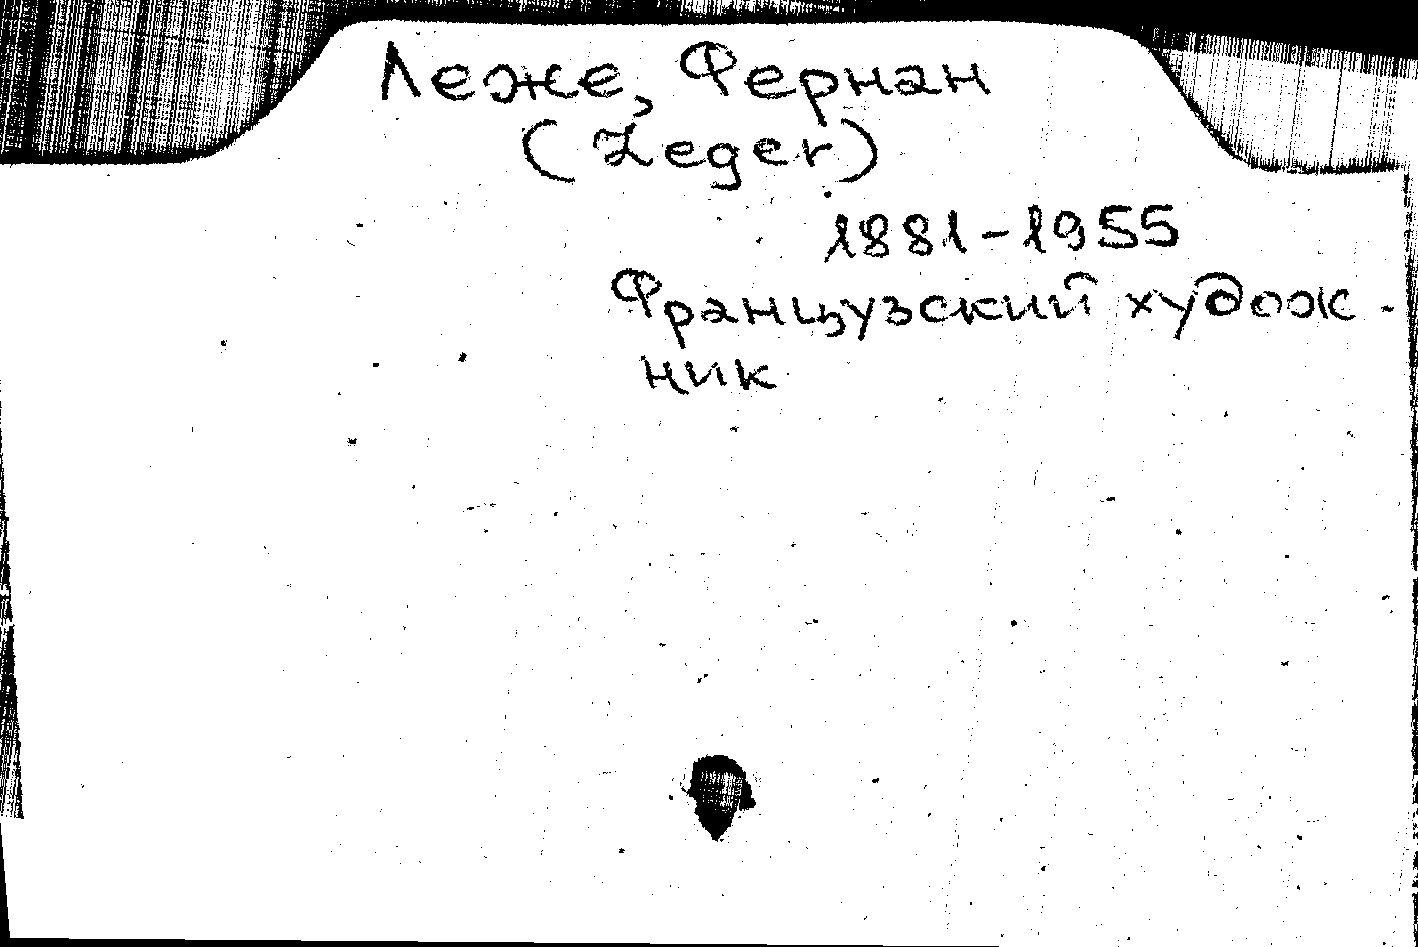 Леже, Фернан
(Leger)
1881-1955
Французский худож-
ник